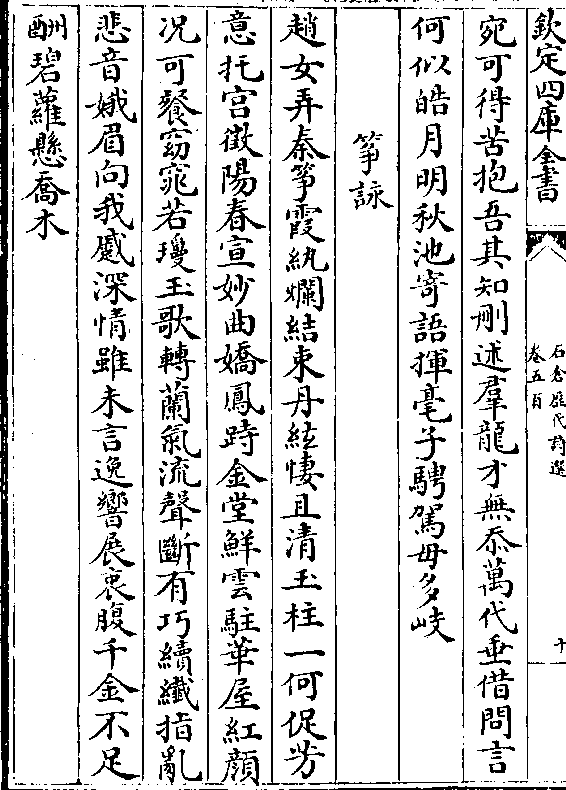 欽定四庫全書
石倉歴代詩選
卷五百
十
宛可得苦抱吾其知刪述羣龍才無忝萬代垂借問言
何似皓月明秋池寄語揮毫子騁駕毋多岐
箏詠
趙女弄秦箏霞紈爛結束丹絃悽且清玉柱一何促芳
意托宫徵陽春宣妙曲嬌鳳跱金堂鮮雲駐華屋紅顔
况可餐窈窕若瓊玉歌轉蘭氣流聲斷有巧續纖指亂
悲音娥眉向我蹙深情雖未言逸響展衷腹千金不足
酬碧蘿懸喬木